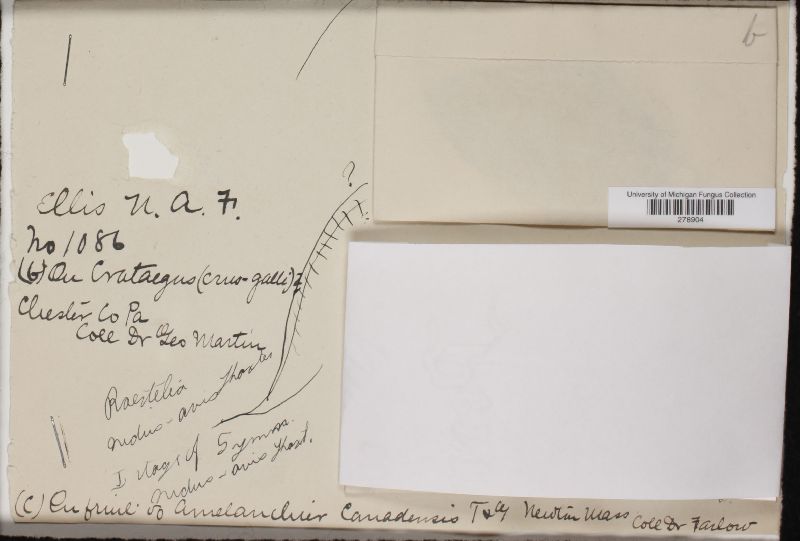 b
University of Michigan Fungus Collection
278904
?
Ellis N. A. F.
No 1086
(b) On Crataegus (crus-galli)?
Chester Co Pa
Coll Dr Geo Martin
Roestelia
nidus-avis Thaxter
I stage of Gymnos.
nidus-avis Thaxt.
(C) On fruit of Amelanchier Canadensis T & G Newton Mass Coll Dr Farlow